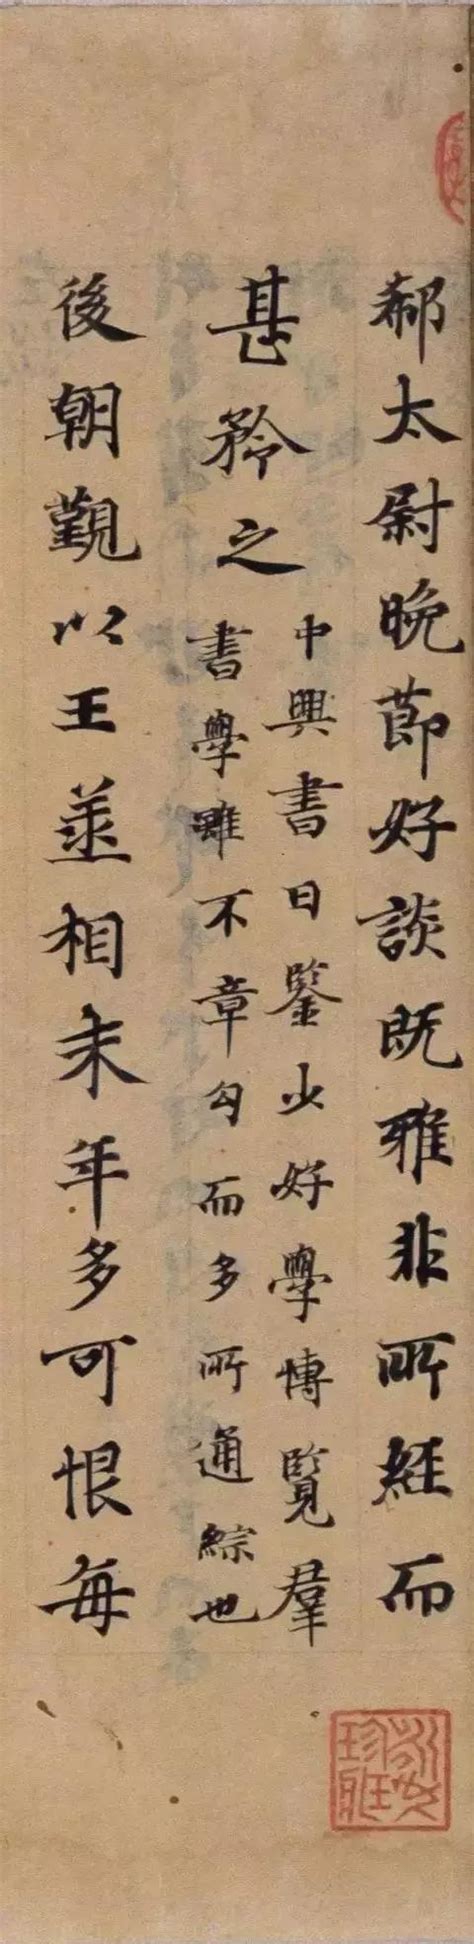 郗太尉晚莭好談既雅非所經而
甚矜之
中興書曰鑒少好學博覽羣
書學雖不章勾而多所通綜也
後朝覲以王丞相末年多可恨每